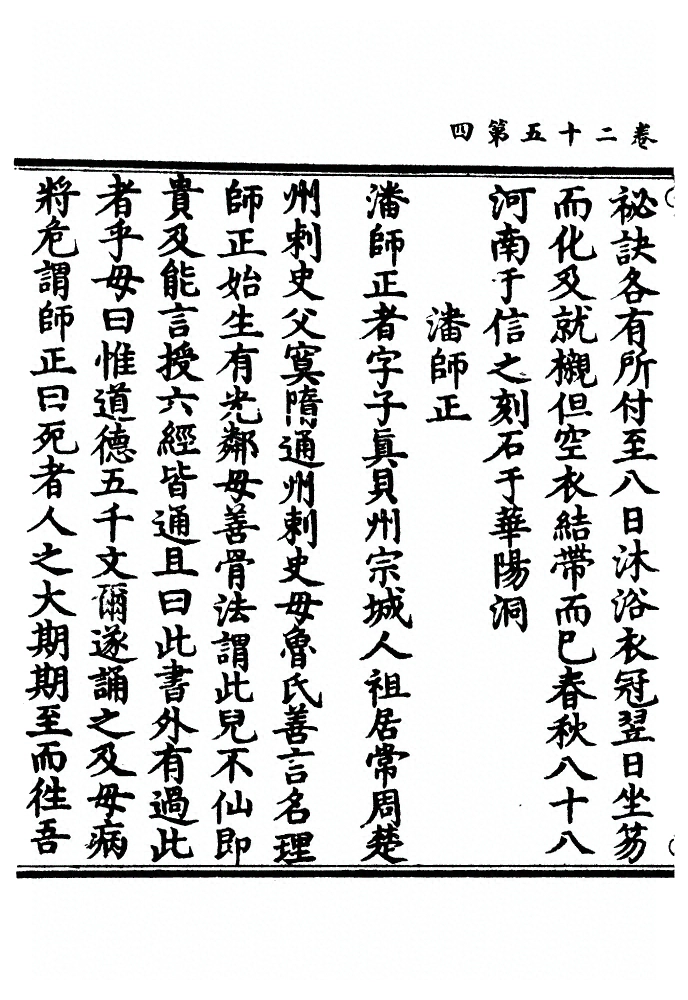 卷二十五第四
祕訣各有所付至八日沐浴衣冠翌日坐笏
而化及就櫬但空衣結帶而已春秋八十八
河南于信之刻石于華陽洞
潘師正
潘師正者字子眞貝州宗城人祖居常周楚
州刺史父寞隋通州刺史毋魯氏善言名理
師正始生有光鄰毋善骨法謂此兒不仙即
貴及能言授六經皆通且曰此書外有過此
者乎毋曰惟道德五千文爾遂誦之及毋病
將危謂師正曰死者人之大期期至而徃吾